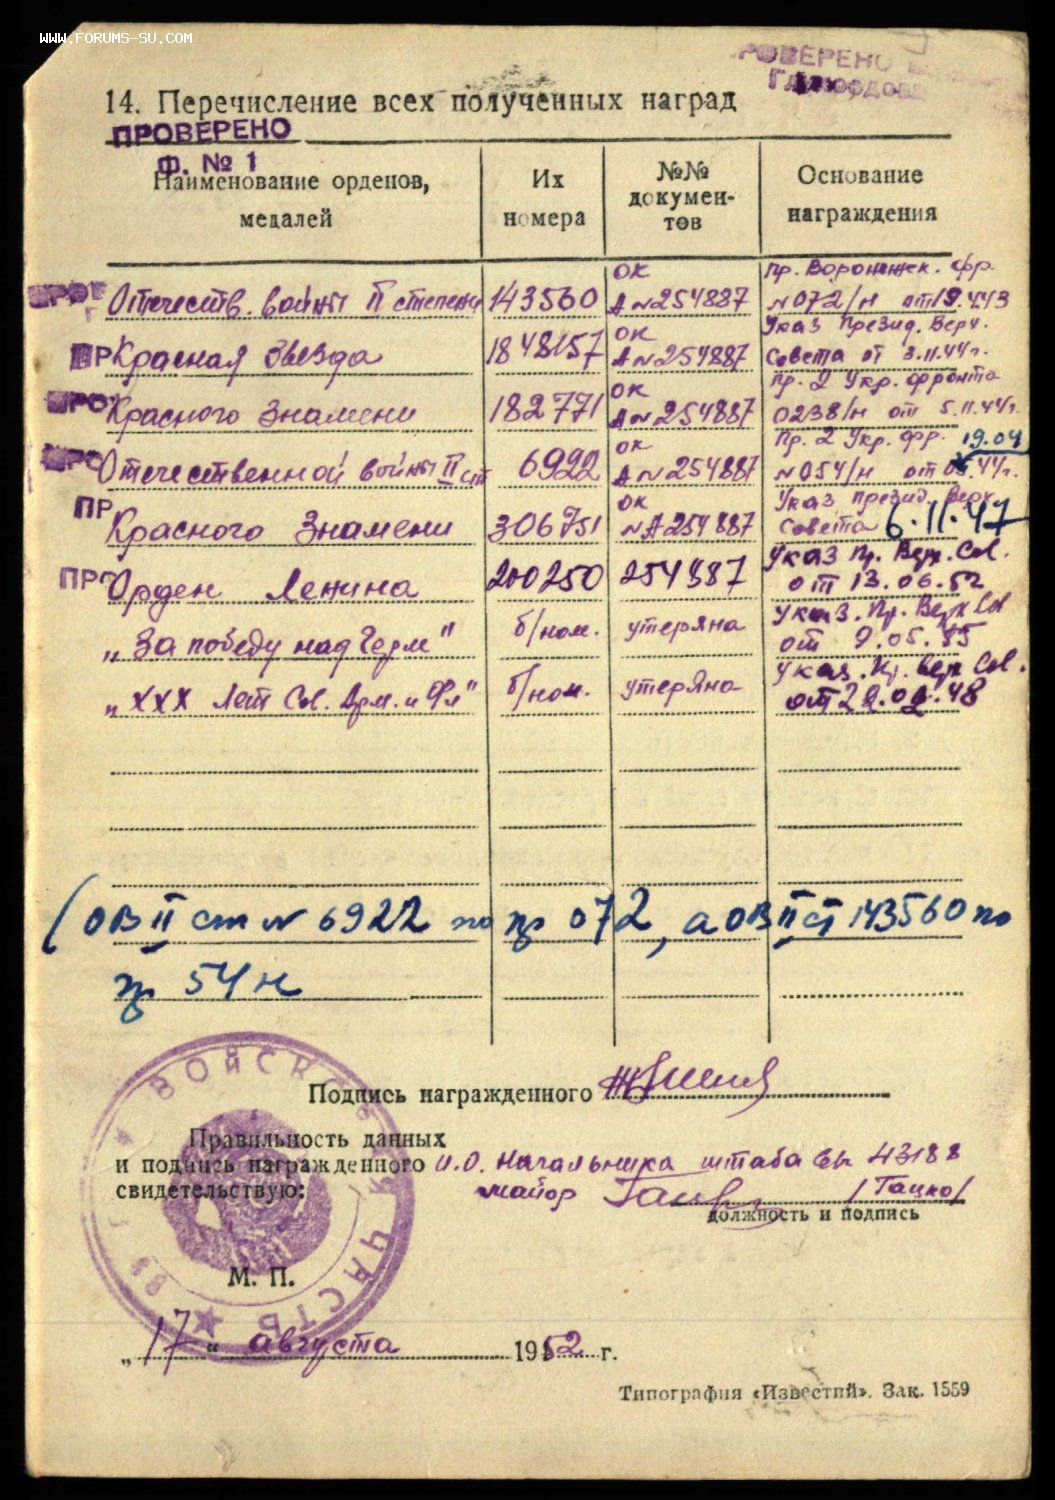 WWW.FORUMS-SU.COM
ПРОВЕРЕНО
14. Перечисление всех полученных наград
ПРОВЕРЕНО
Ф. № 1
Наименование орденов, медалей
Их номера
№№ докумен-
тов
Основание награждения
Отечеств. войны II степени 143560 ОК А № 254887 пр. Воронежск. фр. № 072/н от 19.4.43
ПР Красная Звезда 1848157 ОК А № 254887 Указ Презид. Верх. Совета от 3.11.44г.
ПРО Красного Знамени 182771 ОК А № 254887 Пр. 2 Укр. фронта 0238/н от 5.11.44г.
ПРО Отечественной войны II ст 6922 ОК А № 254887 Пр. 2 Укр. фр. 19.04 № 054/н от 05.44г.
ПР Красного Знамени 306751 ОК № А 254887 Указ презид. Верх. Совета 6.11.47
ПРО Орден Ленина 200250 254887 Указ Пр. Верх. Сов. от 13.06.52
„За победу над Герм" б/ном. утеряна Указ. Пр. Верх Сов от 9.05.45
„XXX Лет Сов. Арм. и Фл" б/ном. утеряна Указ. Пр. Верх Сов. от 22.02.48
(ОВ II ст № 6922 по пр 072, а ОВ II ст 143560 по
пр 54 н
Подпись награжденного
Правильность данных
и подпись награжденного И.О. Начальника штаба в/ч 43188
свидетельствую: майор /Гацко/
должность и подпись
ВОЙСКОВАЯ ЧАСТЬ
М. П.
„17" августа 1952 г.
Типография «Известий». Зак. 1559